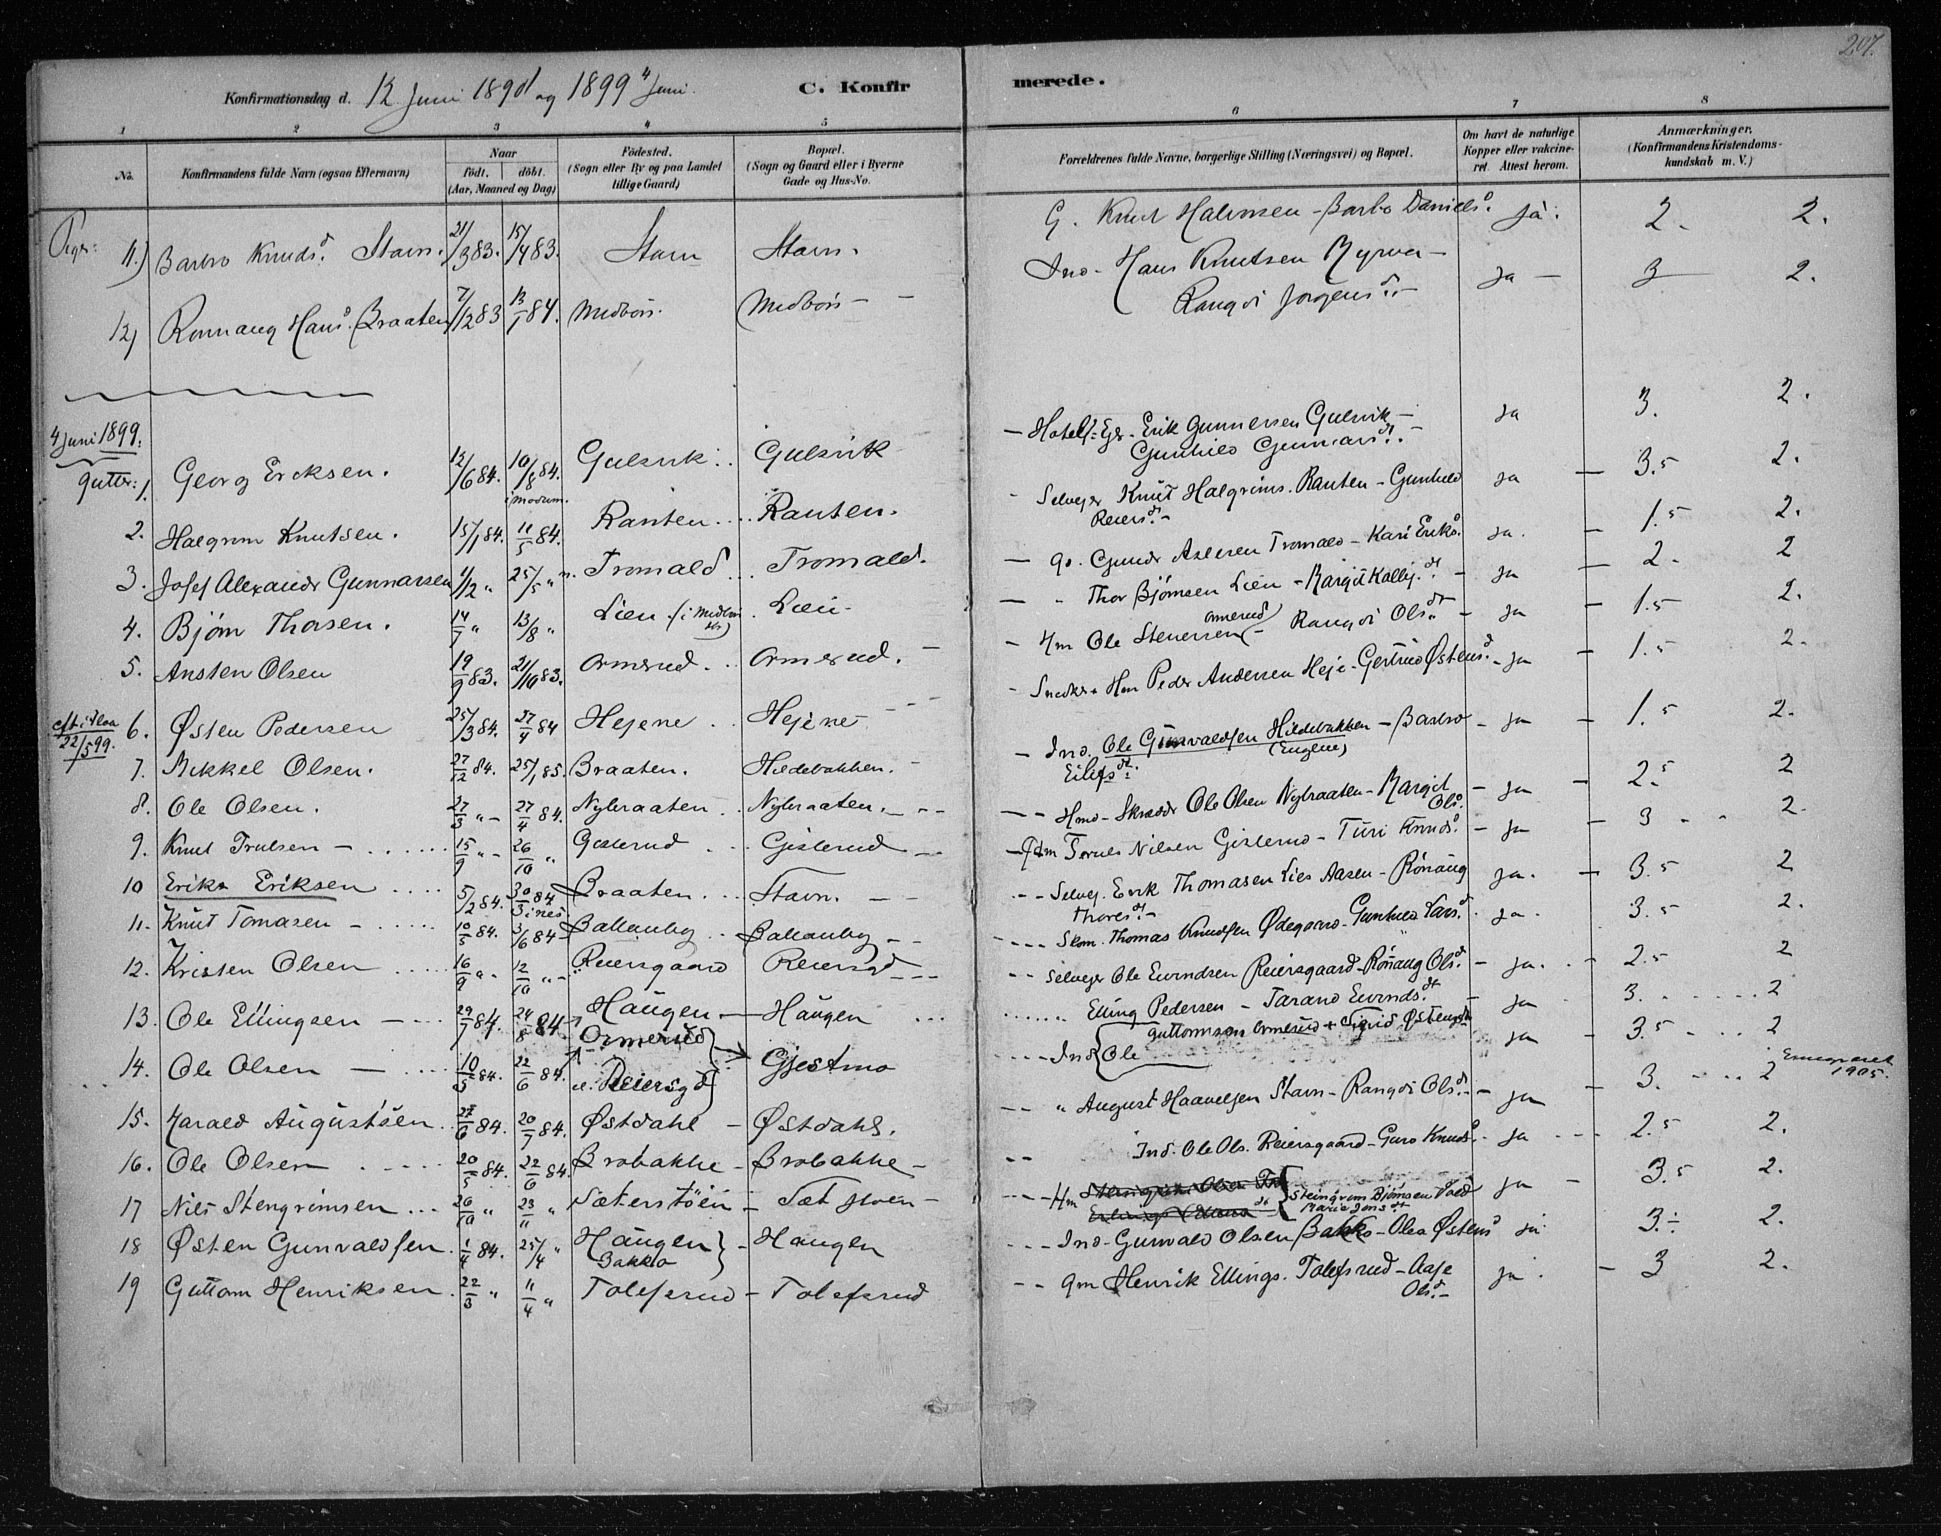 207.
Konfirmationsdag d. 12 Juni 1898 og 1899 4 Juni. C. Konfirmerede.
1 2 3 4 5 6 7 8
No. Konfirmandens fulde Navn (ogsaa Efternavn) Naar födt. döbt. (Aar, Maaned og Dag) Födested. (Sogn eller By og paa Landet tillige Gaard) Bopæl. (Sogn og Gaard eller i Byerne Gade og Hus-No. Forældrenes fulde Navne, borgerlige Stilling (Næringsvei) og Bopæl. Om havt de naturlige Kopper eller vakcineret. Attest herom. Anmærkninger. (Konfirmandens Kristendomskundskab m. V.)
Piger: 11.) Barbro Knudsd. Stavn. 21/3 83. 15/4 83. Stavn Stavn. G. Knut Halvorsen - Barbro Danielsd. ja. 2. 2.
12) Ronnaug Hansd. Braaten 7/12 83 13/1 84. Medbøis. Medbøis - - Ind - Hans Knutsen Myrvea - Rangdi Jørgensd. - ja - 3 2.
4 Juni 1899.
Gutter: 1. Georg Ericksen. 12/6 84. 10/8 84. i Modum. Gulsvik .. Gulsvik - Hotel-Ejer. Erik Gunnersen Gulsvik - Gunhild Gunnarsdt. - ja 3. 2.
2. Halgrim Knutsen. 15/1 84. 11/5 84. Ranten .... Ranten. - Selvejer Knut Halgrims. Ranten - Gunhild Reiersdt. - ja - 3.5 2.
3. Josef Alexander Gunnarsen 4/2 " 25/5 " Tromald ... Tromald. - Gd. Gunder Aslesen Tromald - Kari Eriksd. ja. - 1.5 2.
4. Bjørn Thorsen. 14/7 " 13/8 " Lien . Lien - - " Thor Bjørnsen Lien - Margit dt. - ja - 2. 2
5. Ansten Olsen 19/9 83. 21/10 83. Ormerud. .. Ormerud. - - Hm Ole Stenersen Ormerud - Rangdi Olsdt. - ja - 1.5 2.
22/5 99. 6. Østen Pedersen 25/3 84. 27/4 84 Hejene .. Hejene - - Snedker Hm Peder Andersen Heje - Gertrud Østensd. - ja - 1.5 2.
7. Mikkel Olsen. 27/12 84. 25/1 85. Braaten. Hildebakken. - - Ind. Ole Gunvaldsen Hildebakken (Eugene) - Barbro Eilefsdt. - ja - 1.5 2.
8. Ole Olsen. 27/3 " - 27/4 84. Nybraaten .. Nybraaten. - - - Hmd - Skrædder Ole Olsen Nybraaten - Margit Olsd. - ja - 2.5 2
9. Knut Trulsen - ...... 15/9 " - 26/10 " Gislerud ... Gislerud - Hm Truls Nilsen Gislerud - Turi Knudsd. - ja - 3 .. 2.
10 Erik Eriksen .... 5/2 84. 30/3 84 i nes Braaten ... Stavn. - - Selvej. Erik Thomasen Lies Aasen - Rönaug Thoresdt. - ja. - 3.5 2
11. Knut Tomasen - ..... 10/5 84. 3/6 84 Bakkanby .. Bakkanby - - Thomas Knudsen Ødegaard - Gunhild Larsd. ja - 3.5 2.
12. Kristen Olsen ..... 16/9 " - 12/10 " - Reiersgaard Reiersgd - - - Selvejer Ole Eivindsen Reiersgaard - Rönaug Olsd. - ja. - 2.5 2
13. Ole Ellingsen - ... 29/7 84. 24/8 84. Haugen - Haugen ... Elling Pedersen - Tarand Eivindsdt. - ja 3. ...... 2
14. Ole Olsen - .... 10/5 84. 22/6 84. Ormerud Reiersgd Gjestmo Ind Ole Guttormsen Ormerud + Sigrid Østensdt. ja - 3.5 .... 2
15. Harald Augustsen .. 27/6 84. 20/7 84. Østdahl - Østdahl. - - " August Haavelsen Stavn - Rangdi Olsd. - - ja - 3. .... 2 1905.
16. Ole Olsen ..... 20/5 84. 22/6 84. Brobakke - Brobakke - - - Ind. Ole Ols. Reiersgaard - Guro Knudsd. - ja ... 2.5 2.
17 Nils Stengrimsen ... 26/10 " 23/11 " Sæterstöen - Sæt støen - - Hm Steingrim Bjørnsen Marie Jonsdt ja - 3.5 2.
18 Østen Gunvaldsen. 1/4 84. 25/4 " Haugen Bakko - Haugen - Ind - Gunvald Olsen Bakko - Olea Østensd ja 3.÷ 2.
19 Guttorm Henriksen. 22/3 " 11/4 " Tolefsrud - Tolefsrud - - Gm Henrik Ellings. Tolefsrud - Aase Olsd. - ja . - 3 2.